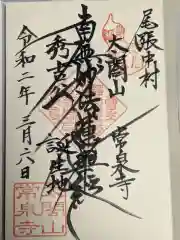 尾張中村
太閤山
常泉寺
南無妙法蓮華経
秀吉公
誕生地
令和二年三月六日
太閤山
常泉寺